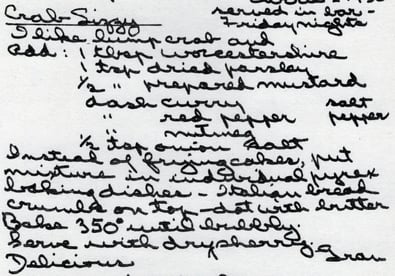 Crab Sizzy served in bar -
Friday nights
I like lump crab and
add: 1 tbsp worcestershire
1 tsp dried parsley
1/2 " prepared mustard
dash curry salt
" red pepper pepper
" nutmeg
1/2 tsp onion salt
Instead of frying cakes, put
mixture in individual pyrex
baking dishes - Italian bread
crumbs on top - dot with butter
Bake 350° until bubbly.
Serve with dry sherry.
Delicious Gran